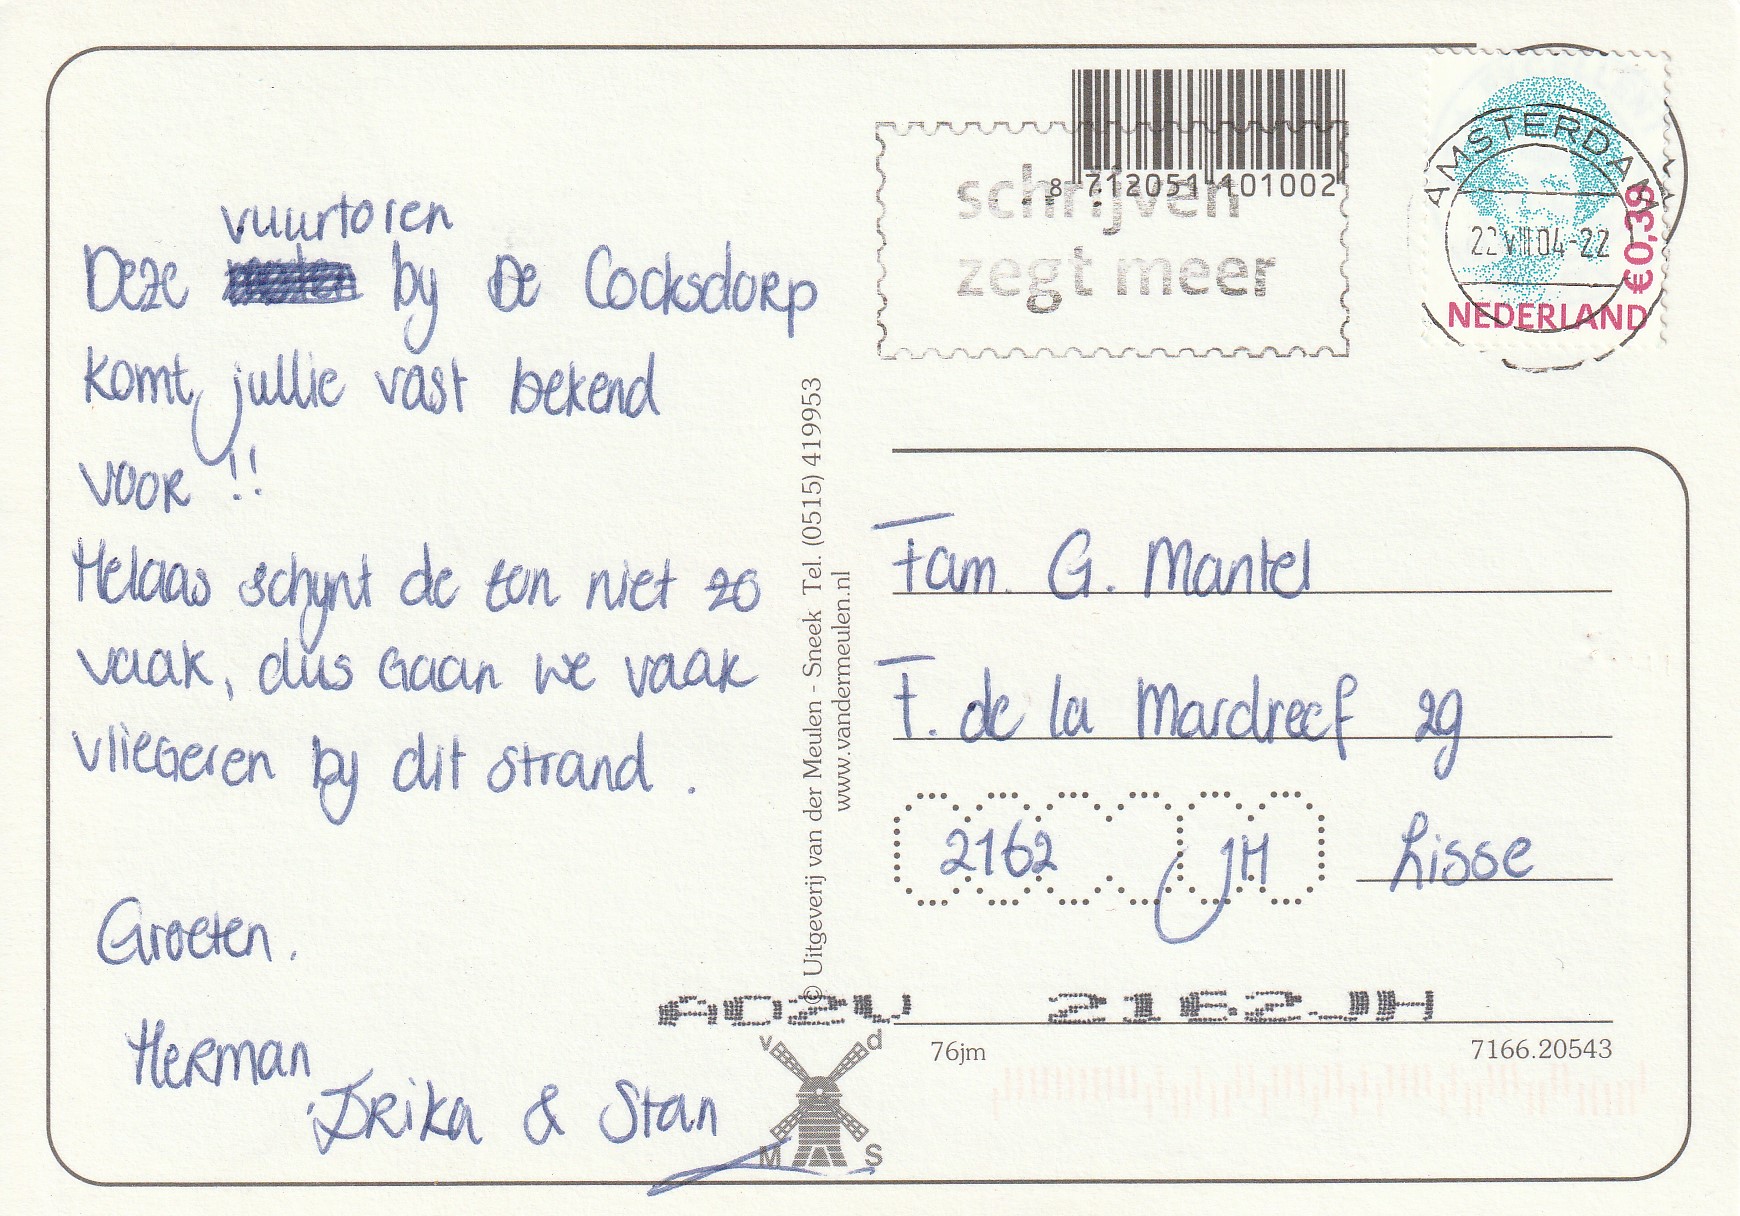 vuurtoren
Deze by De Cocksdorp
komt jullie vast bekend
voor !!
Helaas schynt de zon niet zo
vaak, dus gaan we vaak
vliegeren by dit strand.
Groeten.
Herman
Erika & Stan
© Uitgeverij van der Meulen - Sneek Tel. (0515) 419953
www.vandermeulen.nl
8 712051 101002
schrijven
zegt meer
AMSTERDAM
22 VIII 04-22
€ 0,39
NEDERLAND
Fam. G. Mantel
F. de la Mardreef 29
2162 JH Lisse
2162JH
v d
M S
76jm
7166.20543